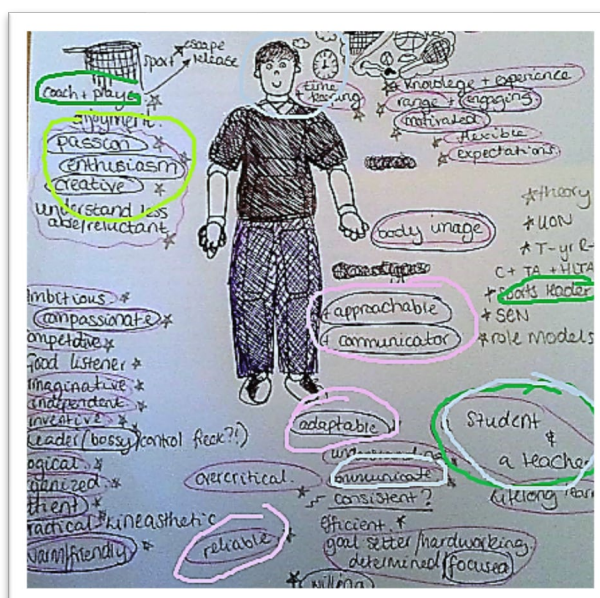 escape
sport release
coach + player
enjoyment.
passion
enthusiasm
creative
understand less
able/reluctant
time
keeping
knowledge + experience
range + engaging
motivated
flexible
expectations
body image
theory
UON
T-yr R-
C + TA + HLTA
sports leader
SEN
role models
+ approachable
+ communicator
ambitious
compassionate
competitive
Good listener
imaginative
independent
inventive
Leader/bossy/control freck?!)
ogical
ganized
tient
ractical + kineasthetic
warm/friendly
adaptable
understanding
communicate
consistent?
overcritical.
reliable
efficient.
goal setter/hardworking
determined focused
willing
Student
&
a teacher
lifelong learn